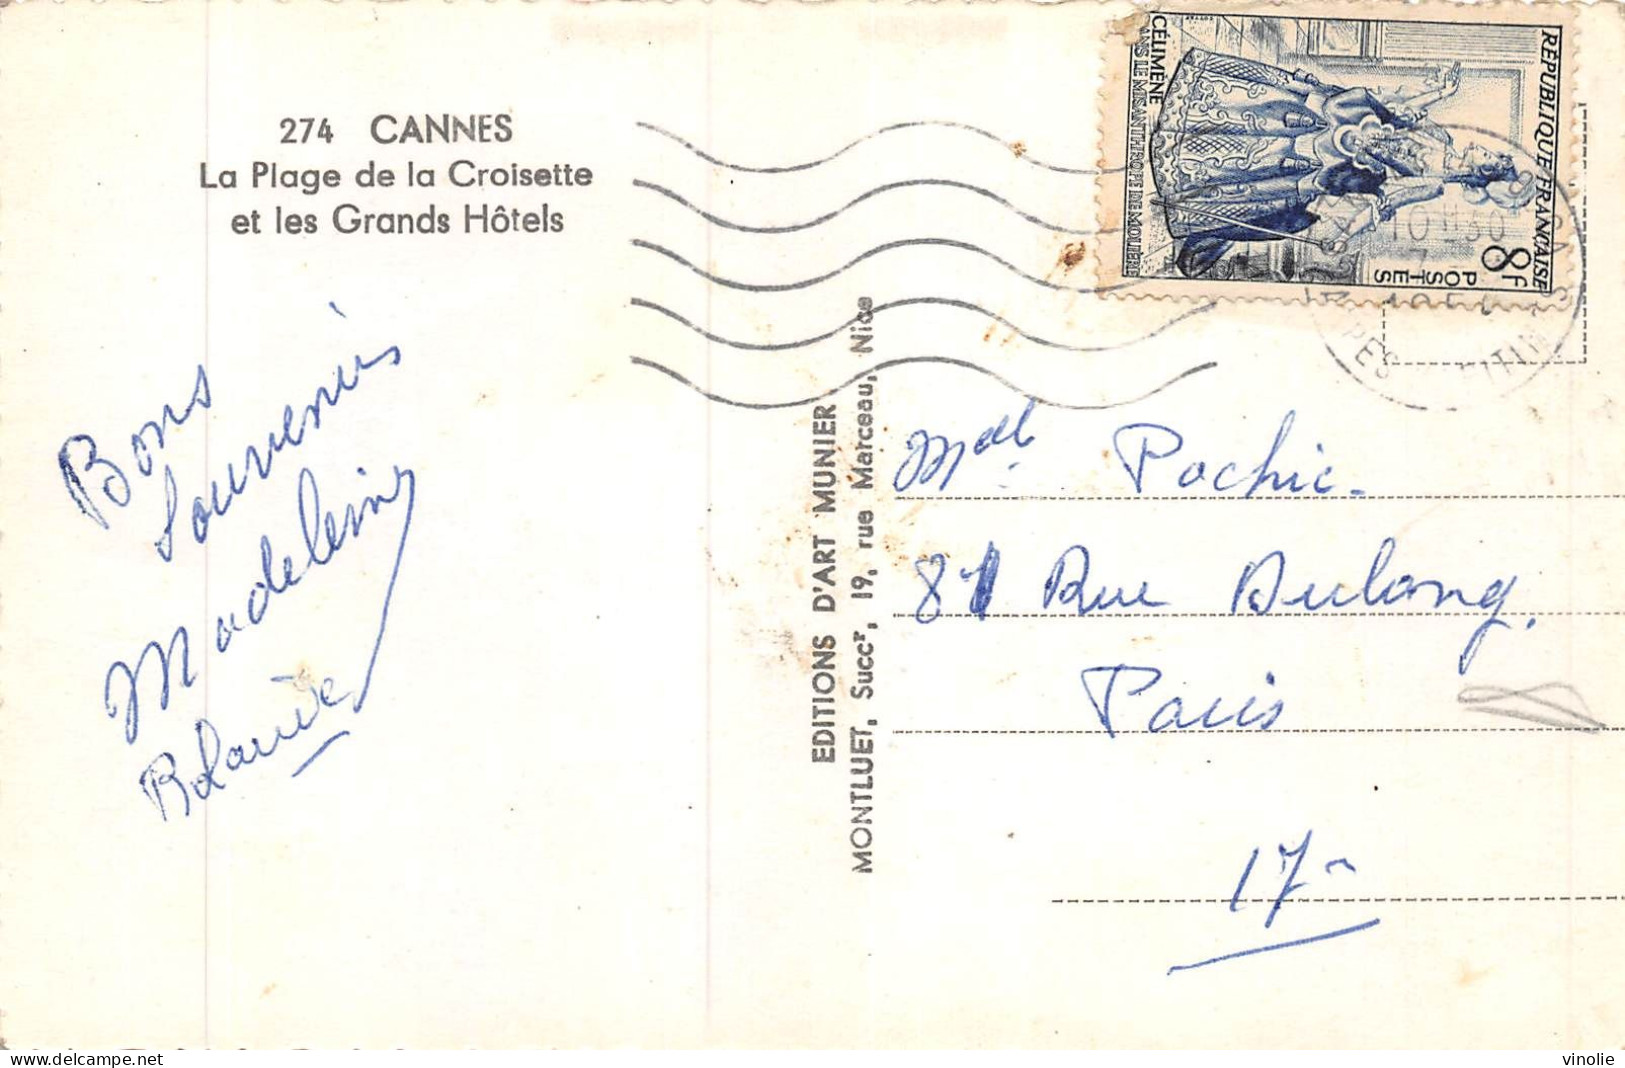 274 CANNES
La Plage de la Croisette
et les Grands Hôtels
Bons
souvenirs
Madeleine
EDITIONS D'ART MUNIER
MONTLUET, Succʳ, 19, rue Marceau, Nice
RÉPUBLIQUE FRANÇAISE
8F
POSTES
CÉLIMÈNE
DANS LE MISANTHROPE DE MOLIÈRE
10 H 30
Mdll Pochic.
81 Rue Dulong.
Paris
17e
vinolie